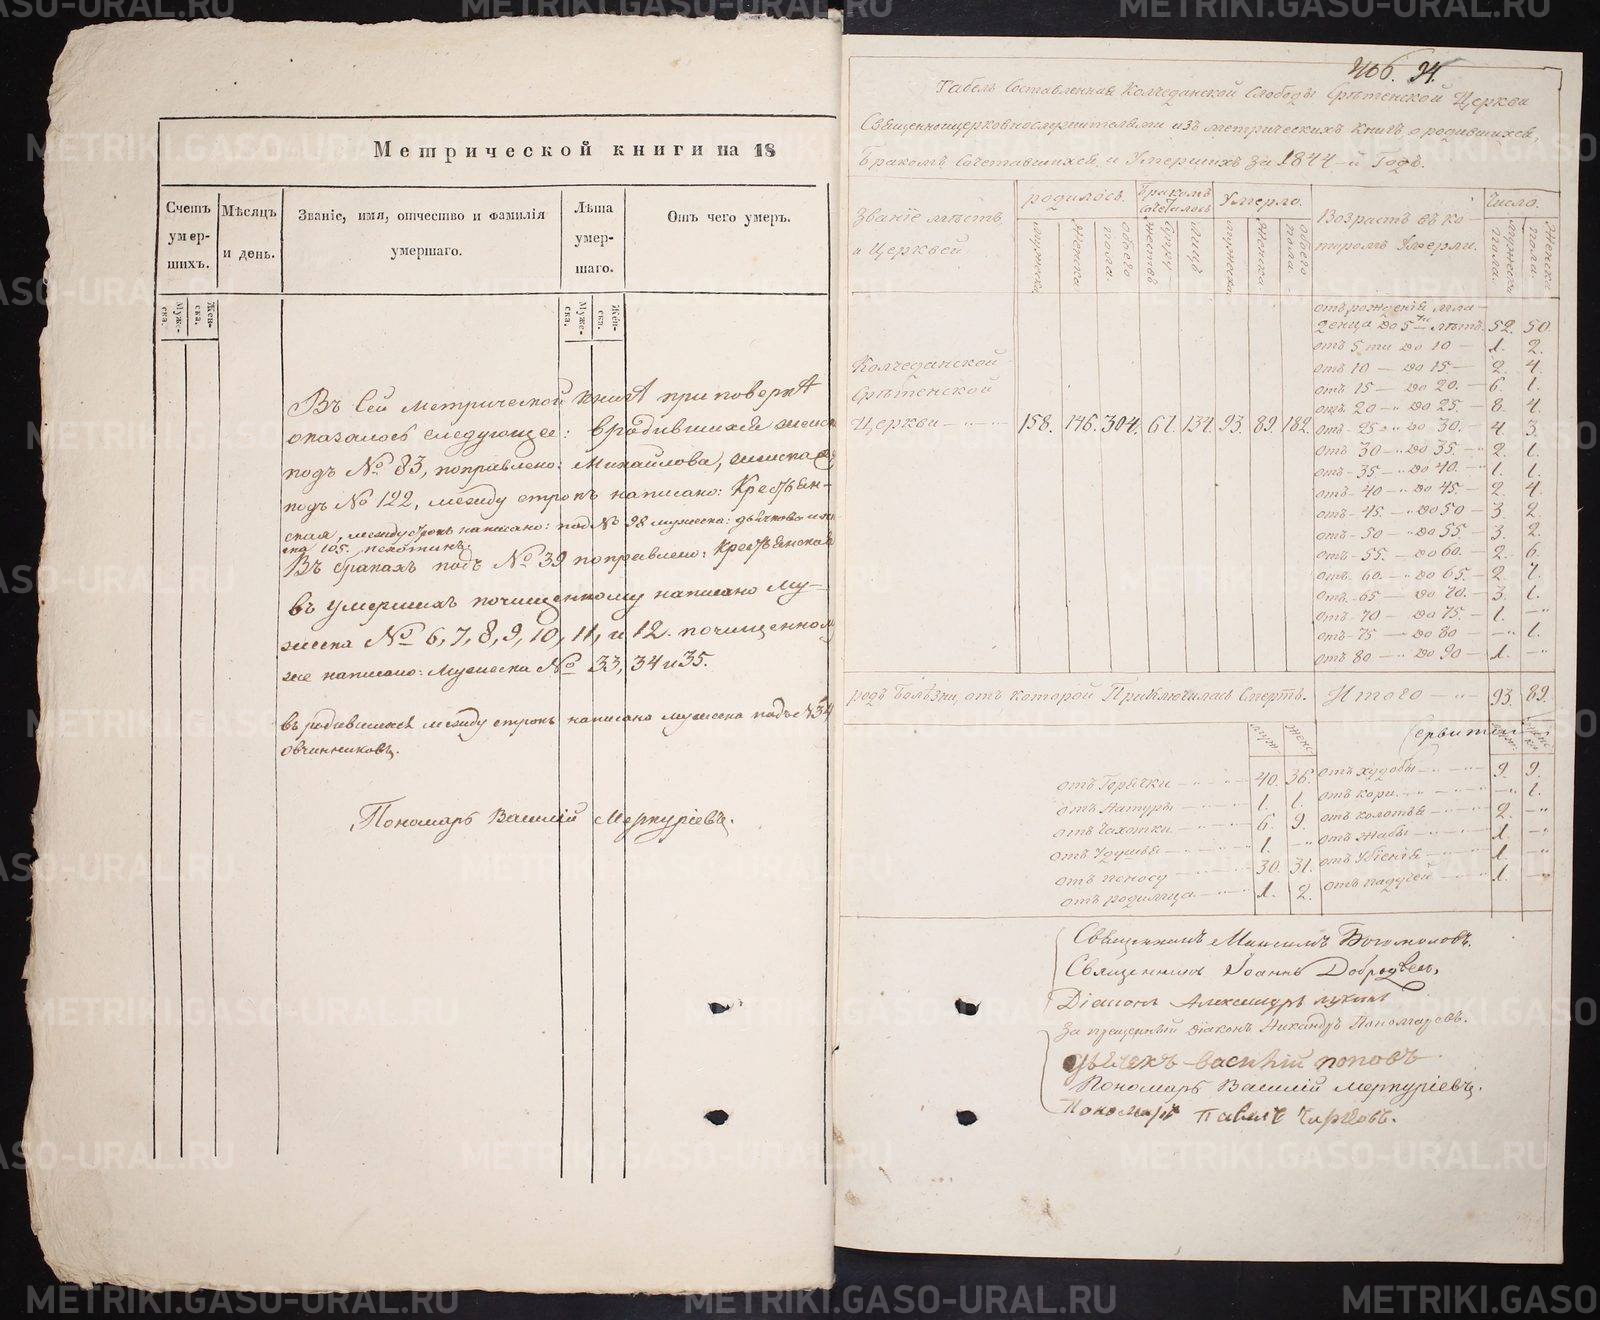 Метрической книги на 18
Счетъ умершихъ.
Мѣсяцъ и день.
Званіе, имя, отчество и фамилія умершаго.
Лѣта умершаго.
Отъ чего умеръ.
Мужеска.
Женска.
Мужеска.
Женска.
Въ сей метрической книгѣ при повѣркѣ
оказалось следующее: в родившихся женск
подъ № 83, поправлено: Михайлова, женска
подъ № 122, между строкъ написано: Крестьян-
ская, между строкъ написано: под № 98 мужеска: дьячкова и
ска 105.
Въ бракахъ подъ № 39 поправлено: Крестьянской
въ умершихъ почищенному написано му-
жеска № 6, 7, 8, 9, 10, 11, и 12. почищенном
же написано: Мужеска № 33, 34 и 35.
въ родившихся между строкъ написано мужеска подъ № 34
овчинниковъ.
Пономарь Василій Меркуріевъ.
406. 94.
Табель Составленная Колчеданской Слободы Срѣтенской Церкви
Священноцерковнослужителями изъ метрическихъ книгъ, о родившихся,
Бракомъ Сочетавшихся, и Умершихъ за 1844-й Годъ.
Званіе мѣстъ, и Церквей
родилось.
Бракомъ сочеталось
Умерло.
Возрастъ въ котиромъ Умерли.
Число.
мужеска
Женска
обоего пола.
супружествъ
Лицъ
мужеска
Женска
обоего пола.
мужеска пола.
Женска пола.
Колчеданской
Срѣтенской
Церкви 158. 146. 304. 67. 134. 93. 89. 182.
отъ рожденія мла-
денца до 5ти лѣтъ. 52. 50.
отъ 5 ти до 10 — 1. 2.
отъ 10 — до 15 — 2. 4.
отъ 15 — до 20. — 6. 1.
отъ 20 — до 25. — 8. 4.
отъ 25 — до 30. — 4. 3.
отъ 30 — до 35. — 2. 1.
отъ 35 — до 40. — 1. 1.
отъ 40 — до 45. — 2. 4.
отъ 45. — до 50 — 3. 2.
отъ 50 — до 55. — 3. 2.
отъ 55. — до 60. — 2. 6.
отъ 60. — до 65. — 2. 7.
отъ 65 — до 70. — 3. 1.
отъ 70 — до 75. — 1. —
отъ 75 — до 80 — — 1.
отъ 80 — до 90 — 1. —
родъ Болѣзни, отъ которой Приключилась Смерть.
Итого — 93. 89.
муж. женс.
отъ Горячки — 40. 36.
отъ Натуры — 1. 1.
отъ Чахотки — 6. 9.
отъ Удушья — 1. —
отъ поносу — 30. 31.
отъ родимца — 1. 2.
отъ худобы — 9. 9.
отъ кори — — 1.
отъ колотья — 2. —
отъ Жабы — 1. —
отъ Убіенія — 1. —
отъ падучей — 1. —
Священникъ Максимъ Богомоловъ.
Священникъ Іоаннъ
Діаконъ Александръ
Запрещенный діаконъ Никандръ Пономаревъ.
Дьячекъ василій поповъ
Пономарь Василій Меркуріевъ.
Пономарь Павелъ
METRIKI.GASO-URAL.RU